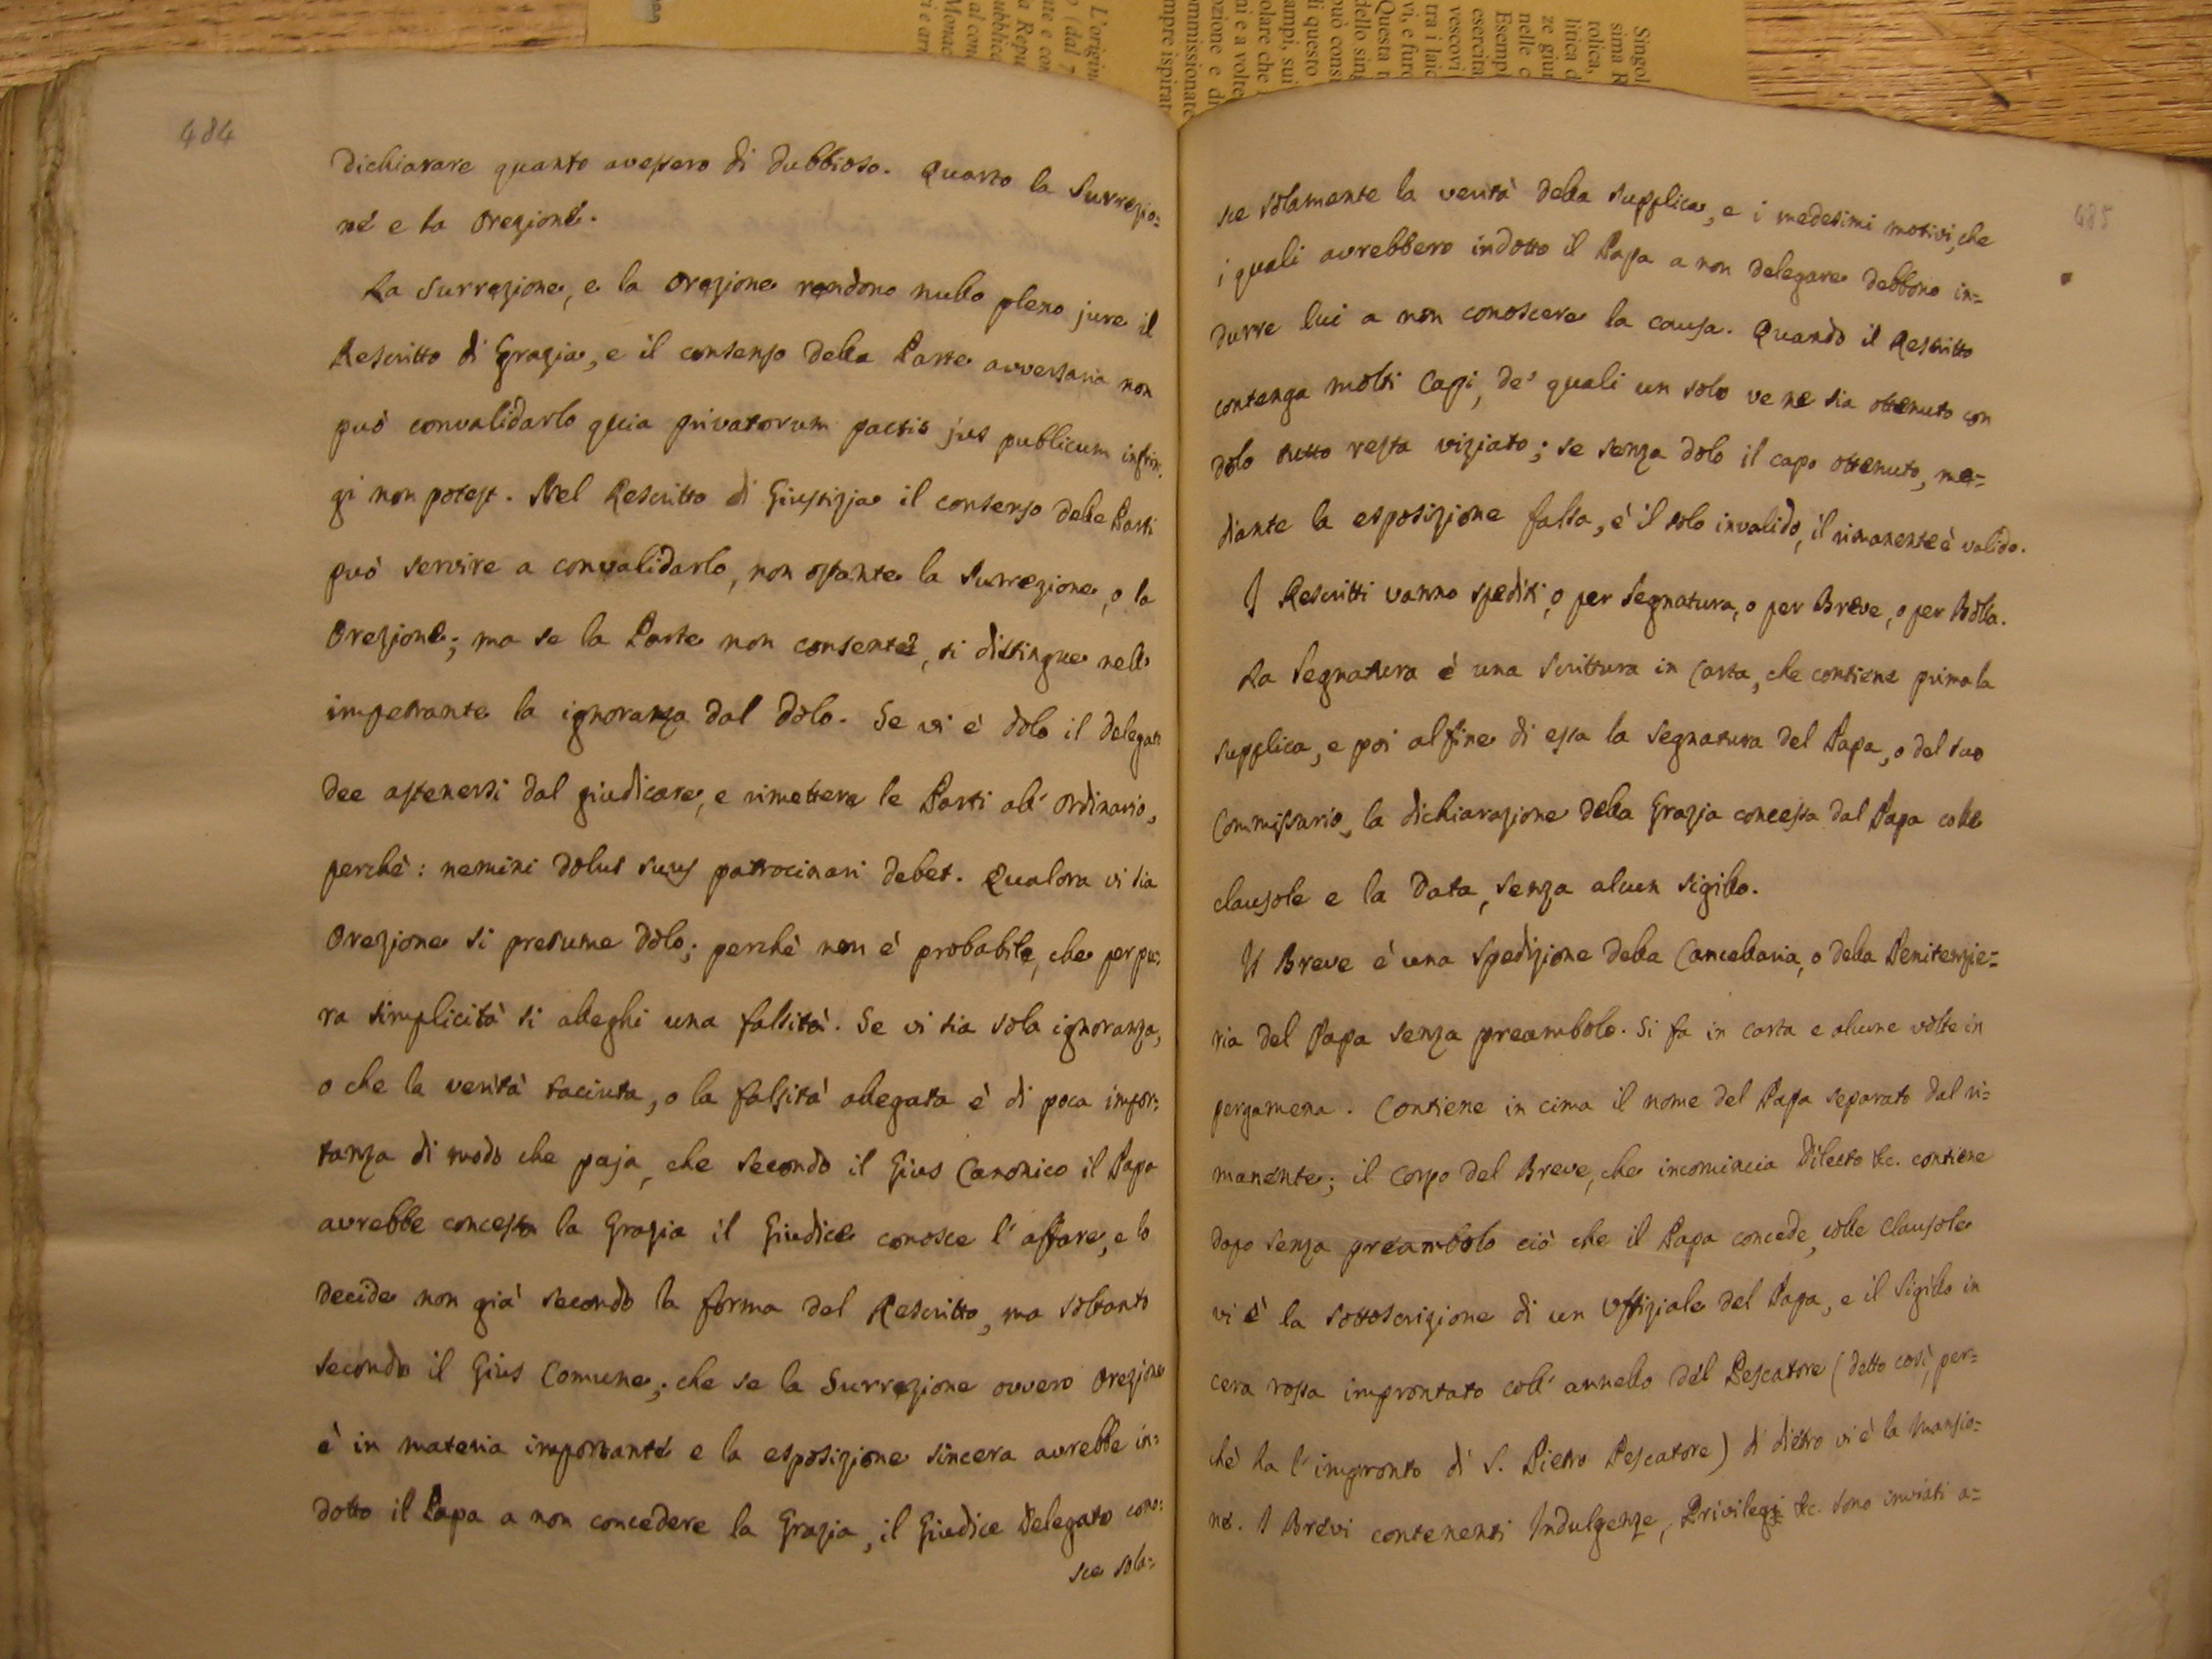 484
dichiarare quanto avessero di dubbioso. Quarto la Surrezio=
ne e la Orezione.
La Surrezione, e la Orezione rendono nullo pleno jure il
Rescritto di Grazia, e il consenso della Parte avversaria non
può convalidarlo quia privatorum pactis jus publicum infrin=
gi non potest. Nel Rescritto di Giustizia il consenso delle Parti
può servire a convalidarlo, non ostante la Surrezione, o la
Orezione; ma se la Parte non consente, si distingue nello
impetrante la ignoranza dal dolo. Se vi è dolo il delegato
dee astenersi dal giudicare, e rimettere le Parti all' Ordinario,
perchè: nemini dolus suus patrocinari debet. Qualora vi sia
Orezione si presume dolo; perchè non è probabile, che per pu=
ra simplicità si alleghi una falsità. Se vi sia sola ignoranza,
o che la verità taciuta, o la falsità allegata è di poca impor=
tanza di modo che paja, che secondo il Gius Canonico il Papa
avrebbe concessa la Grazia il Giudice conosce l' affare, e lo
decide non già secondo la forma del Rescritto, ma soltanto
secondo il Gius Comune; che se la Surrezione ovvero Orezione
è in materia importante e la esposizione sincera avrebbe in=
dotto il Papa a non concedere la Grazia, il Giudice Delegato cono=
sce sola=
485
sce solamente la verità della supplica, e i medesimi motivi, che
i quali avrebbero indotto il Papa a non delegare debbono in=
durre lui a non conoscere la causa. Quando il Rescritto
contenga molti Capi, de' quali un solo ve ne sia ottenuto con
dolo tutto resta viziato; se senza dolo il capo ottenuto, me=
diante la esposizione falsa, è il solo invalido, il rimanente è valido.
I Rescritti vanno spediti, o per Segnatura, o per Breve, o per Bolla.
La Segnatura è una Scrittura in Carta, che contiene prima la
supplica, e poi al fine di essa la Segnatura del Papa, o del suo
Commissario, la dichiarazione della Grazia concessa dal Papa colle
clausole e la Data, senza alcun sigillo.
Il Breve è una spedizione della Cancellaria, o della Penitenzie=
ria del Papa senza preambolo. Si fa in carta e alcune volte in
pergamena. Contiene in cima il nome del Papa separato dal ri=
manente; il Corpo del Breve, che incomincia Dilecto &c. contiene
dopo senza preambolo ciò che il Papa concede, colle Clausole
vi è la sottoscrizione di un Uffiziale del Papa, e il Sigillo in
cera rossa improntato coll' annello del Pescatore (detto così, per=
chè ha l' impronto di S. Pietro Pescatore) di dietro vi è la Mansio=
ne. I Brevi contenenti Indulgenze, Privilegj &c. sono inviati a=
L'origin
0 (dal 7
te e con
a Repu
ubblica
al con
Monac
i e arri
mpre ispirat
mmissionate
ozione e di
ni e a volte
olare che
ampi, sui
li questo
può const
dello sin
Questa t
vi, e furo
tra i laic
vescovi
esercita
Esemp
nelle c
ze giur
litica d
tolica,
sima R
Singol